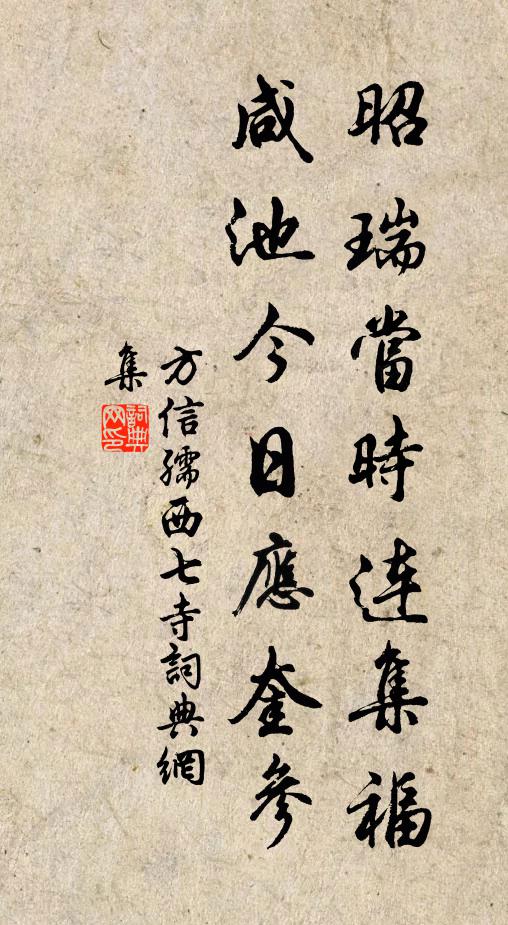 昭瑞當時連集福
咸池今日應奎參
方信孺西七寺詞典網
集
詞典網印